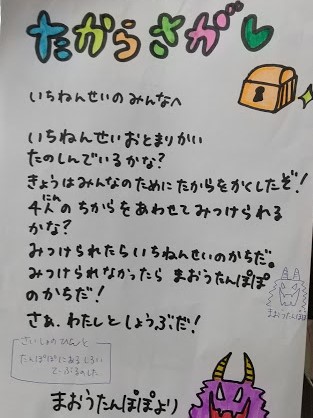 たからさがし
いちねんせいの みんなへ
いちねんせいおとまりかい
たのしんでいるかな?
きょうはみんなのために たからをかくしたぞ!
4人のちからをあわせて みつけられる
にん
かな?
みつけられたら いちねんせいのかちだ。
みつけられなかったら まおうたんぽぽ
のかちだ!
さぁ、わたしとしょうぶだ!
まおうたんぽぽ
さいしょの ひんと
たんぽぽにある しろい
てーぶるのした
まおうたんぽぽより